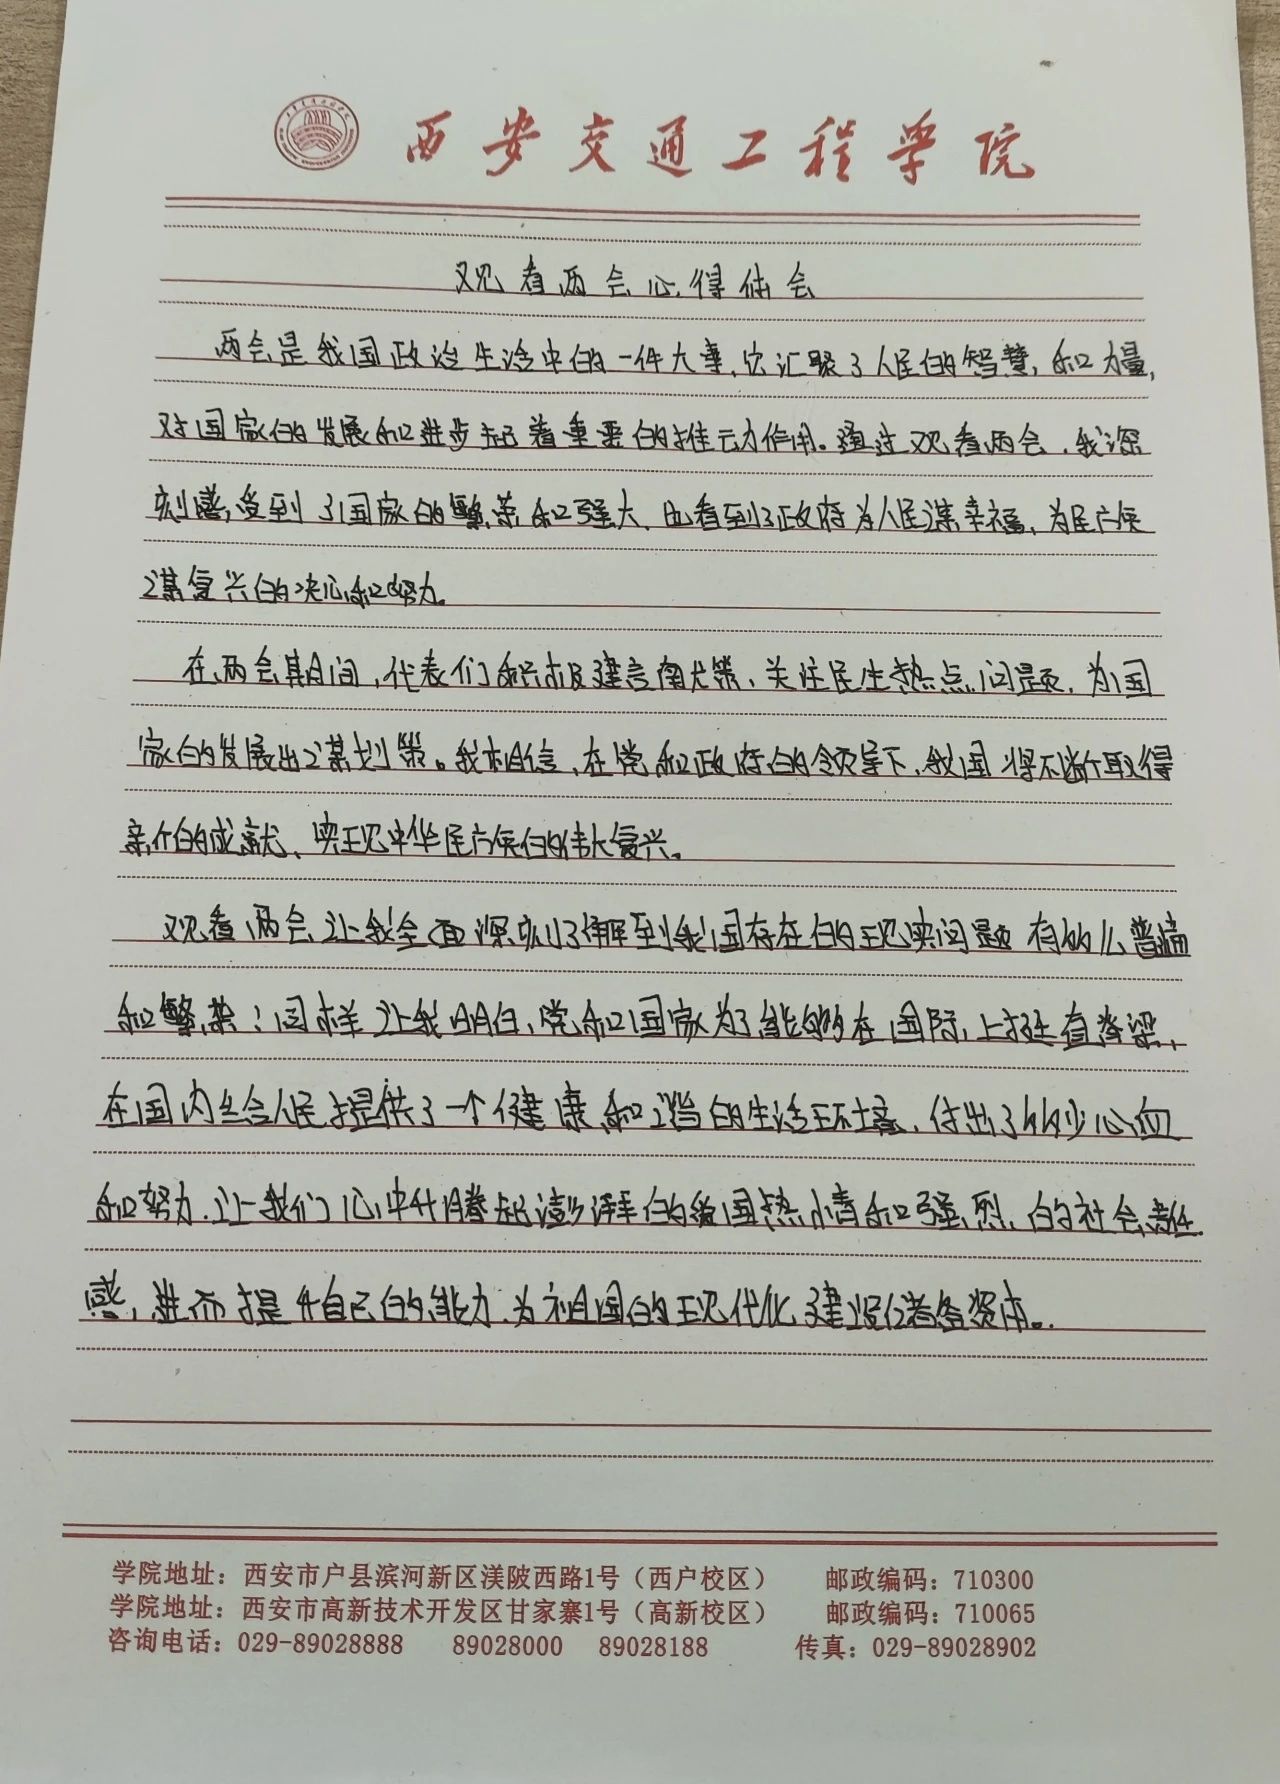 西安交通工程学院
观看两会心得体会
两会是我国政治生活中的一件大事,它汇聚了人民的智慧,和力量,
对国家的发展和进步起着重要的推动作用。通过观看两会,我深
刻感受到了国家的繁荣和强大,也看到了政府为人民谋幸福,为民族
谋复兴的决心和努力。
在两会期间,代表们积极建言献策,关注民生热点问题,为国
家的发展出谋划策。我相信,在党和政府的领导下,我国将不断取得
新的成就、实现中华民族的伟大复兴。
观看两会让我全面深刻了解到我国存在的现实问题有多么普遍
和繁杂;同样让我明白,党和国家为了能够在国际上挺直脊梁,
在国内给人民提供了一个健康和谐的生活环境,付出了多少心血
和努力,让我们心中升腾起澎湃的爱国热情和强烈的社会责任
感,进而提升自己的能力,为祖国的现代化建设储备资本。
学院地址:西安市户县滨河新区渼陂西路1号(西户校区) 邮政编码:710300
学院地址:西安市高新技术开发区甘家寨1号(高新校区) 邮政编码:710065
咨询电话:029-89028888 89028000 89028188 传真:029-89028902